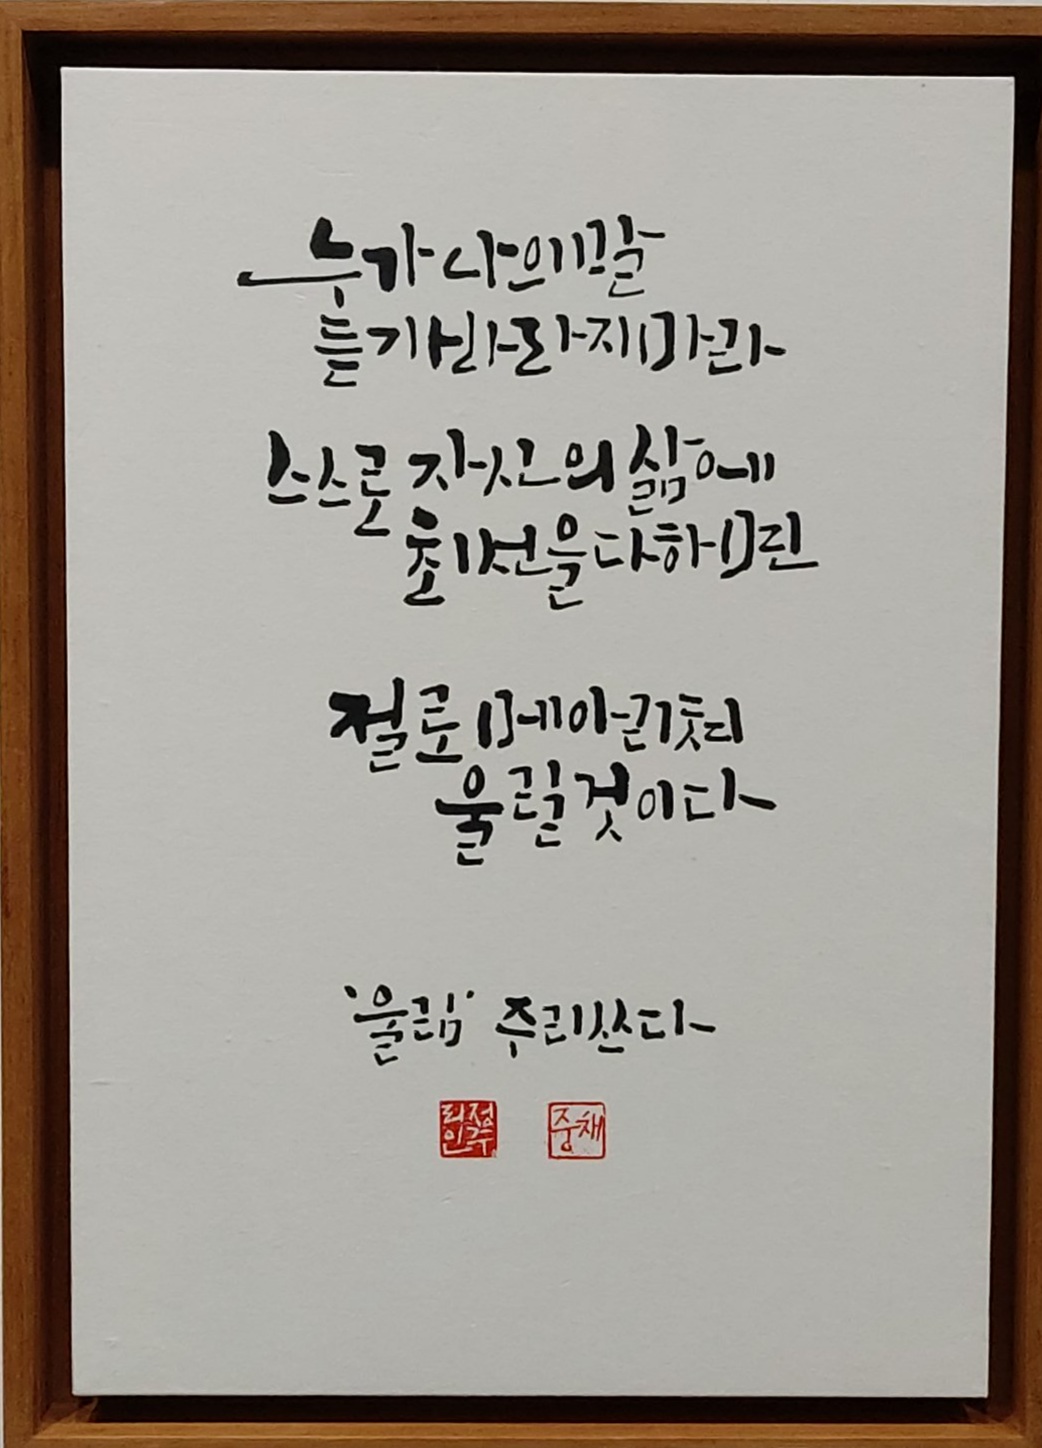 누가 나의 말
듣기 바라지 마라
스스로 자신의 삶에
최선을 다하면
절로 메아리쳐
울릴 것이다
'울림' 주리 쓰다
정주리인
중채